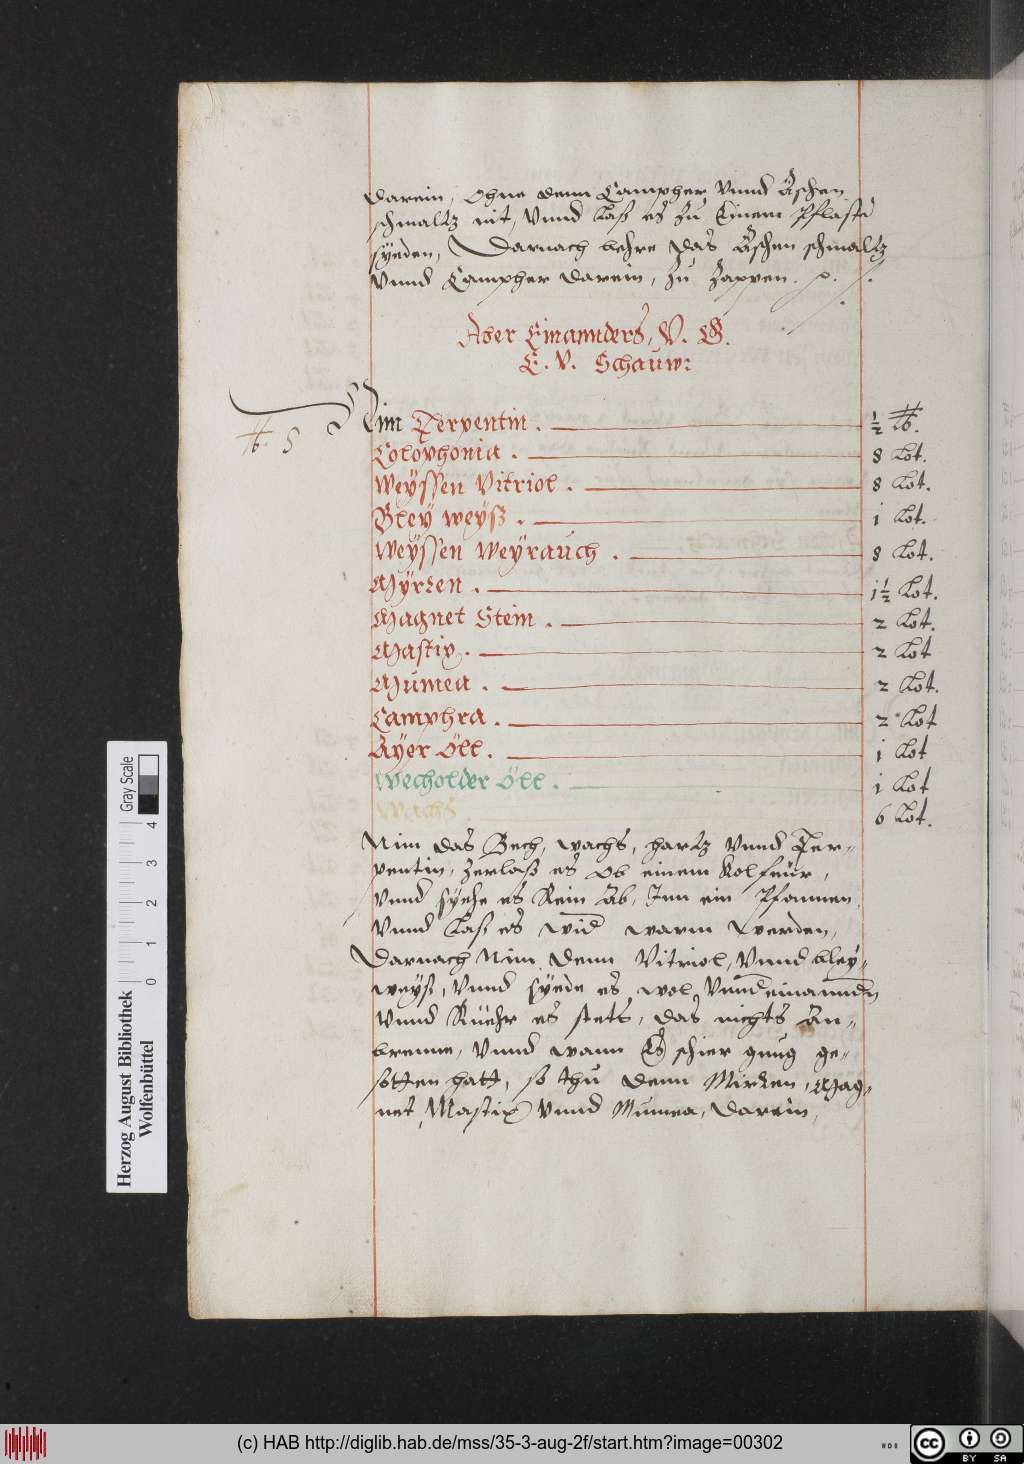 darein, Ohne denn Campher Vnnd Äschen
schmaltz nit, Vnnd laß es zu Einem Pflaster
syeden, Darnach behre das Äschen schmaltz
Vnnd Campher darein, zu Zapven.
Aber Einannders, V. G.
E. V. Schauw:
Nim Terpentin. ½ lb.
lb. 8
Colophonia. 8 Lot.
Weyssen Vitriol. 8 Lot.
Bley weyß. i Lot.
Weyssen Weyrauch. 8 Lot.
Myrren. i½ Lot.
Magnet Stein. 2 Lot.
Mastix. 2 Lot
Mumea. 2 Lot.
Camphra. 2 Lot
Äyer Öll. i Lot
Wecholder Öll. i Lot
Wachs. 6 Lot.
Nim das Bech, wachs, hartz Vnnd Ter-
pentin, Zerlaß es Ob einem Kolfeür,
Vnnd syehe es Rein Ab, Inn ein Pfannen,
Vnnd Laß es wid warm werden,
Darnach Nim denn Vitriol, Vnnd bley-
weyß, Vnnd syede es wol Vnnd einannder
Vnnd Rüehr es stets, das nichts An-
brenne, Vnnd wann Es schier gnug ge-
sotten hatt, so thu denn Mirren, Mag-
net, Mastix Vnnd Mumea, darein,
Gray Scale
0 1 2 3 4
Herzog August Bibliothek
Wolfenbüttel
(c) HAB http://diglib.hab.de/mss/35-3-aug-2f/start.htm?image=00302
cc BY SA